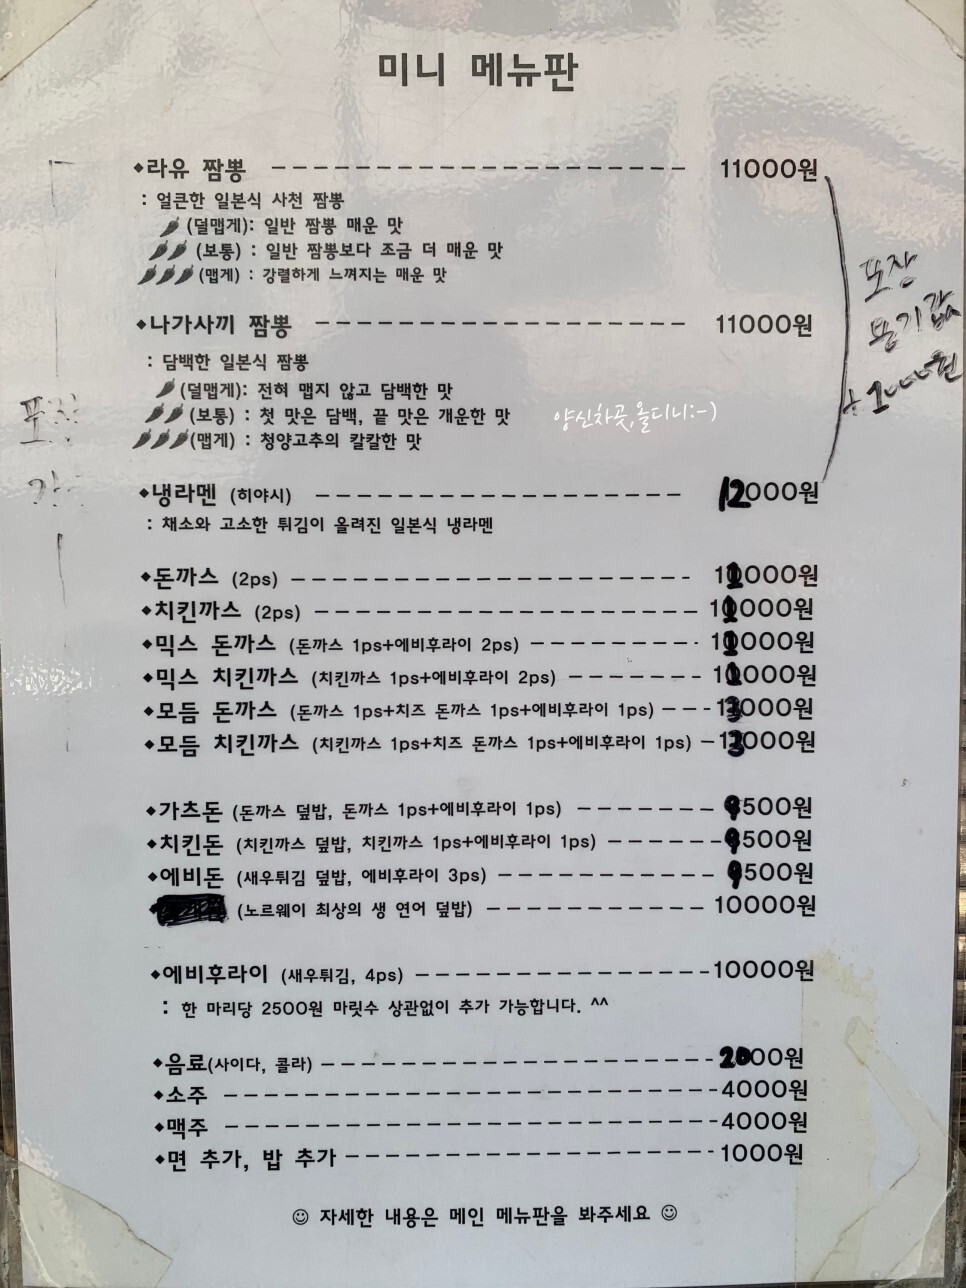 미니 메뉴판
◆라유 짬뽕 ------------------ 11000원
: 얼큰한 일본식 사천 짬뽕
(덜맵게): 일반 짬뽕 매운 맛
(보통) : 일반 짬뽕보다 조금 더 매운 맛
(맵게) : 강렬하게 느껴지는 매운 맛
포장
용기값
+1000원
◆나가사끼 짬뽕 ---------------- 11000원
: 담백한 일본식 짬뽕
(덜맵게): 전혀 맵지 않고 담백한 맛
(보통) : 첫 맛은 담백, 끝 맛은 개운한 맛
양신차곳,올디니:-)
(맵게) : 청양고추의 칼칼한 맛
포장
◆냉라멘 (히야시) ---------------- 12000원
: 채소와 고소한 튀김이 올려진 일본식 냉라멘
◆돈까스 (2ps) ------------------ 11000원
◆치킨까스 (2ps) ----------------- 11000원
◆믹스 돈까스 (돈까스 1ps+에비후라이 2ps) -------- 11000원
◆믹스 치킨까스 (치킨까스 1ps+에비후라이 2ps) ------ 11000원
◆모듬 돈까스 (돈까스 1ps+치즈 돈까스 1ps+에비후라이 1ps) --- 13000원
◆모듬 치킨까스 (치킨까스 1ps+치즈 돈까스 1ps+에비후라이 1ps) - 13000원
◆가츠돈 (돈까스 덮밥, 돈까스 1ps+에비후라이 1ps) ------ 9500원
◆치킨돈 (치킨까스 덮밥, 치킨까스 1ps+에비후라이 1ps) ----- 9500원
◆에비돈 (새우튀김 덮밥, 에비후라이 3ps) --------- 9500원
(노르웨이 최상의 생 연어 덮밥) ---------- 10000원
◆에비후라이 (새우튀김, 4ps) ------------- 10000원
: 한 마리당 2500원 마릿수 상관없이 추가 가능합니다. ^^
◆음료(사이다, 콜라) ----------------- 2000원
◆소주 --------------------- 4000원
◆맥주 --------------------- 4000원
◆면 추가, 밥 추가 ---------------- 1000원
☺ 자세한 내용은 메인 메뉴판을 봐주세요 ☺